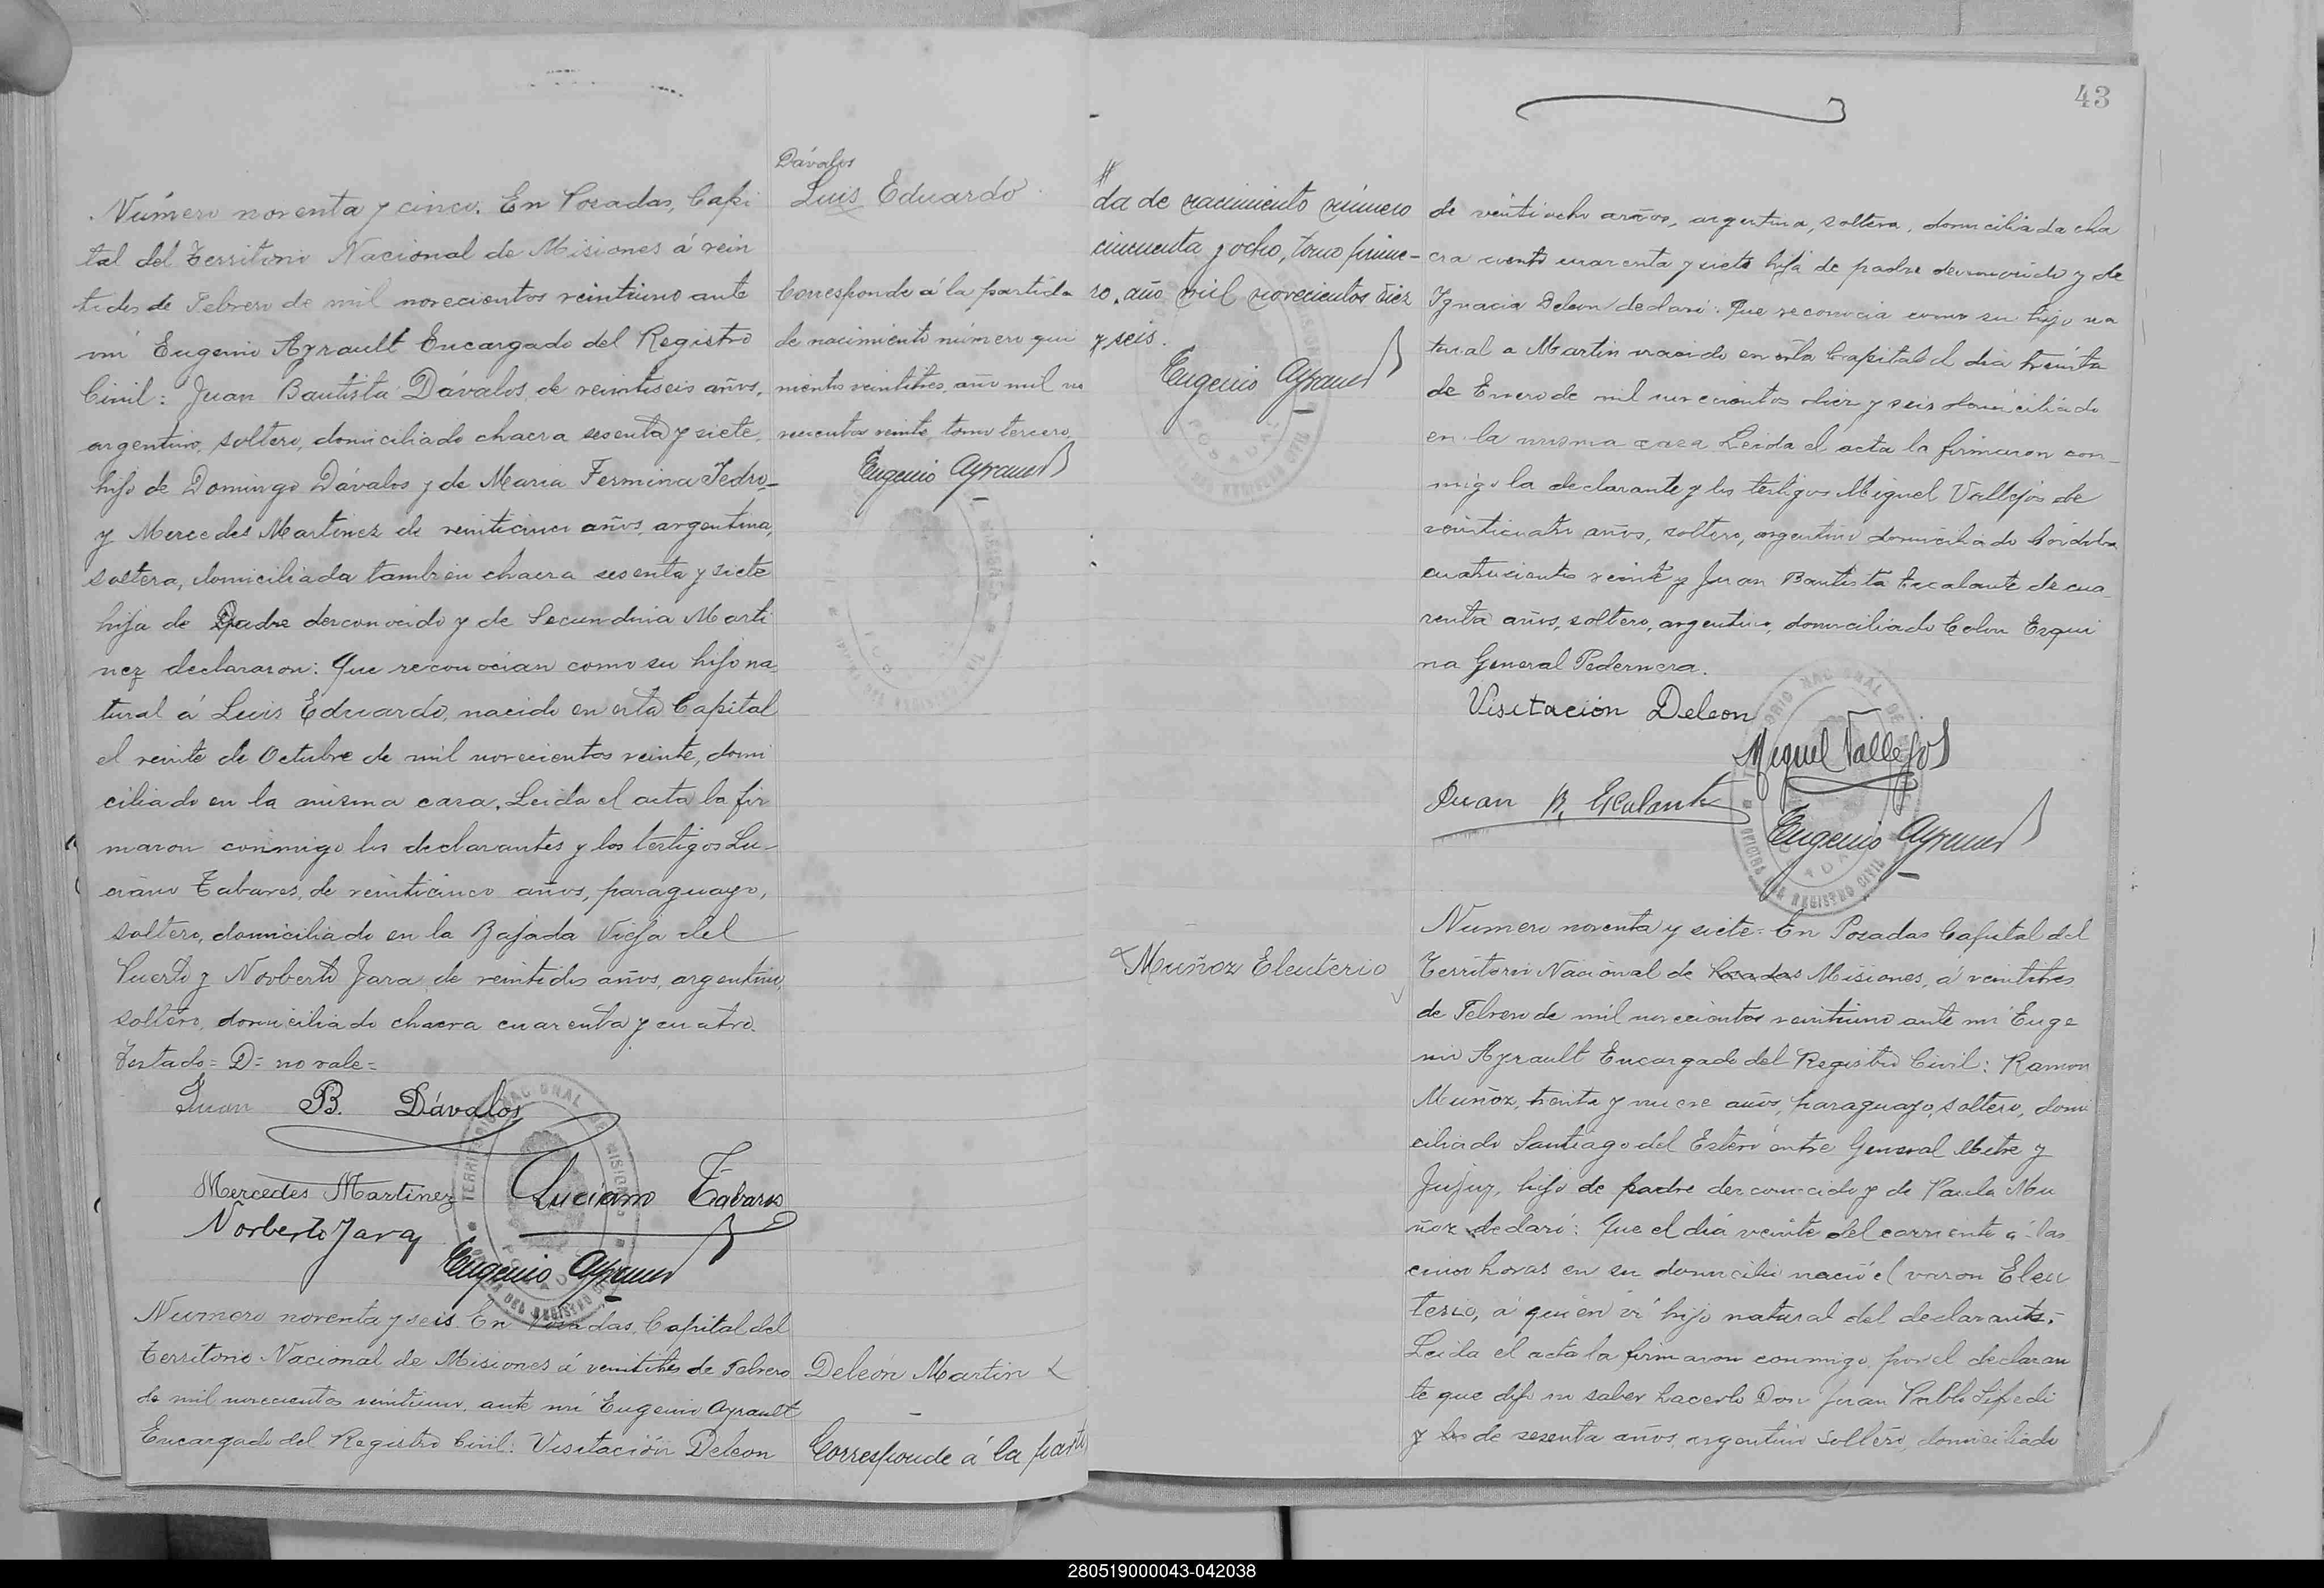 43
Dávalos
Luis Eduardo
Número noventa y cinco. En Posadas, Capi
tal del Territorio Nacional de Misiones á vein
tidos de Febrero de mil novecientos veintiuno ante
mí Eugenio Ayrault Encargado del Registro
Civil: Juan Bautista Dávalos, de veintiseis años,
argentino, soltero, domiciliado chacra sesenta y siete,
hijo de Domingo Dávalos y de Maria Fermina Ledro_
y Mercedes Martinez de veinticinco años, argentina,
soltera, domiciliada tambien chacra sesenta y siete
hija de Padre desconocido y de Secundina Marti
nez declararon: Que reconocian como su hijo na
tural á Luis Eduardo, nacido en esta Capital
el veinte de Octubre de mil novecientos veinte, domi
ciliado en la misma casa. Leida el acta la fir
maron conmigo los declarantes y los testigos Lu-
ciano Tabares, de veinticinco años, paraguayo,
soltero, domiciliado en la Bajada Vieja del
Puerto y Norberto Jara, de veintidos años, argentino,
soltero, domiciliado chacra cuarenta y cuatro.
Testado= D= no vale=
Juan B. Dávalos
Mercedes Martinez Luciano Tabares
Norberto Jara
Eugenio Ayrault
Corresponde á la partida
de nacimiento número qui
nientos veintitres, año mil no
vecientos veinte, tomo tercero
Eugenio Ayrault
Numero noventa y seis En Posadas, Capital del
Territorio Nacional de Misiones á veintitres de Febrero
de mil novecientos veintiuno, ante mí Eugenio Ayrault
Encargado del Registro Civil: Visitación Deleon
Deleón Martin
Corresponde á la parti
#
da de nacimiento número
cincuenta y ocho, tomo prime-
ro, año mil novecientos diez
y seis.
Eugenio Ayrault
de veintiocho años, argentina, soltera, domiciliada cha
cra ciento cuarenta y siete hija de padre desconocido y de
Ignacia Deleon declaró: Que reconocia como su hijo na
tural a Martin nacido en esta Capital el dia treinta
de Enero de mil novecientos diez y seis domiciliado
en la misma casa Leida el acta la firmaron con_
migo la declarante y los testigos Miguel Vallejos de
veinticuatro años, soltero, argentino domiciliado Córdoba
cuatrocientos veinte y Juan Bautista Escalante de cua
renta años, soltero, argentino, domiciliado Colon Esqui
na General Pedernera.
Visitación Deleon
Miguel Vallejos
Juan B. Escalante
Eugenio Ayrault
Muñoz Eleuterio
Numero noventa y siete= En Posadas Capital del
Territorio Nacional de Posadas Misiones, á veintitres
de Febrero de mil novecientos veintiuno ante mi Euge
nio Ayrault Encargado del Registro Civil: Ramon
Muñoz, treinta y nueve años, paraguayo, soltero, domi
ciliado Santiago del Estero entre General Mitre y
Jujuy, hijo de padre desconocido y de Paula Mu
ñoz declaró: Que el dia veinte del corriente á las
cinco horas en su domicilio nació el varon Eleu
terio, á quien ví hijo natural del declarante.
Leida el acta la firmaron conmigo, por el declaran
te que dijo no saber hacerlo Don Juan Pablo
y los de sesenta años argentino soltero, domiciliado
TERRITORIO NACIONAL DE MISIONES
POSADAS
OFICINA DEL REGISTRO CIVIL
280519000043-042038